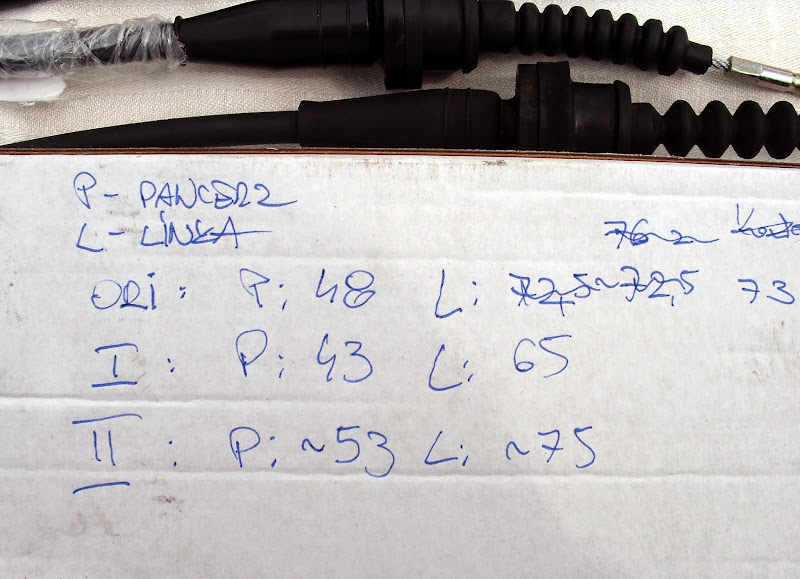 P - PANCERZ
L - LINKA
ORI: P: 48 L: 72,5~72,5 73
I: P: 43 L: 65
II: P: ~53 L: ~75